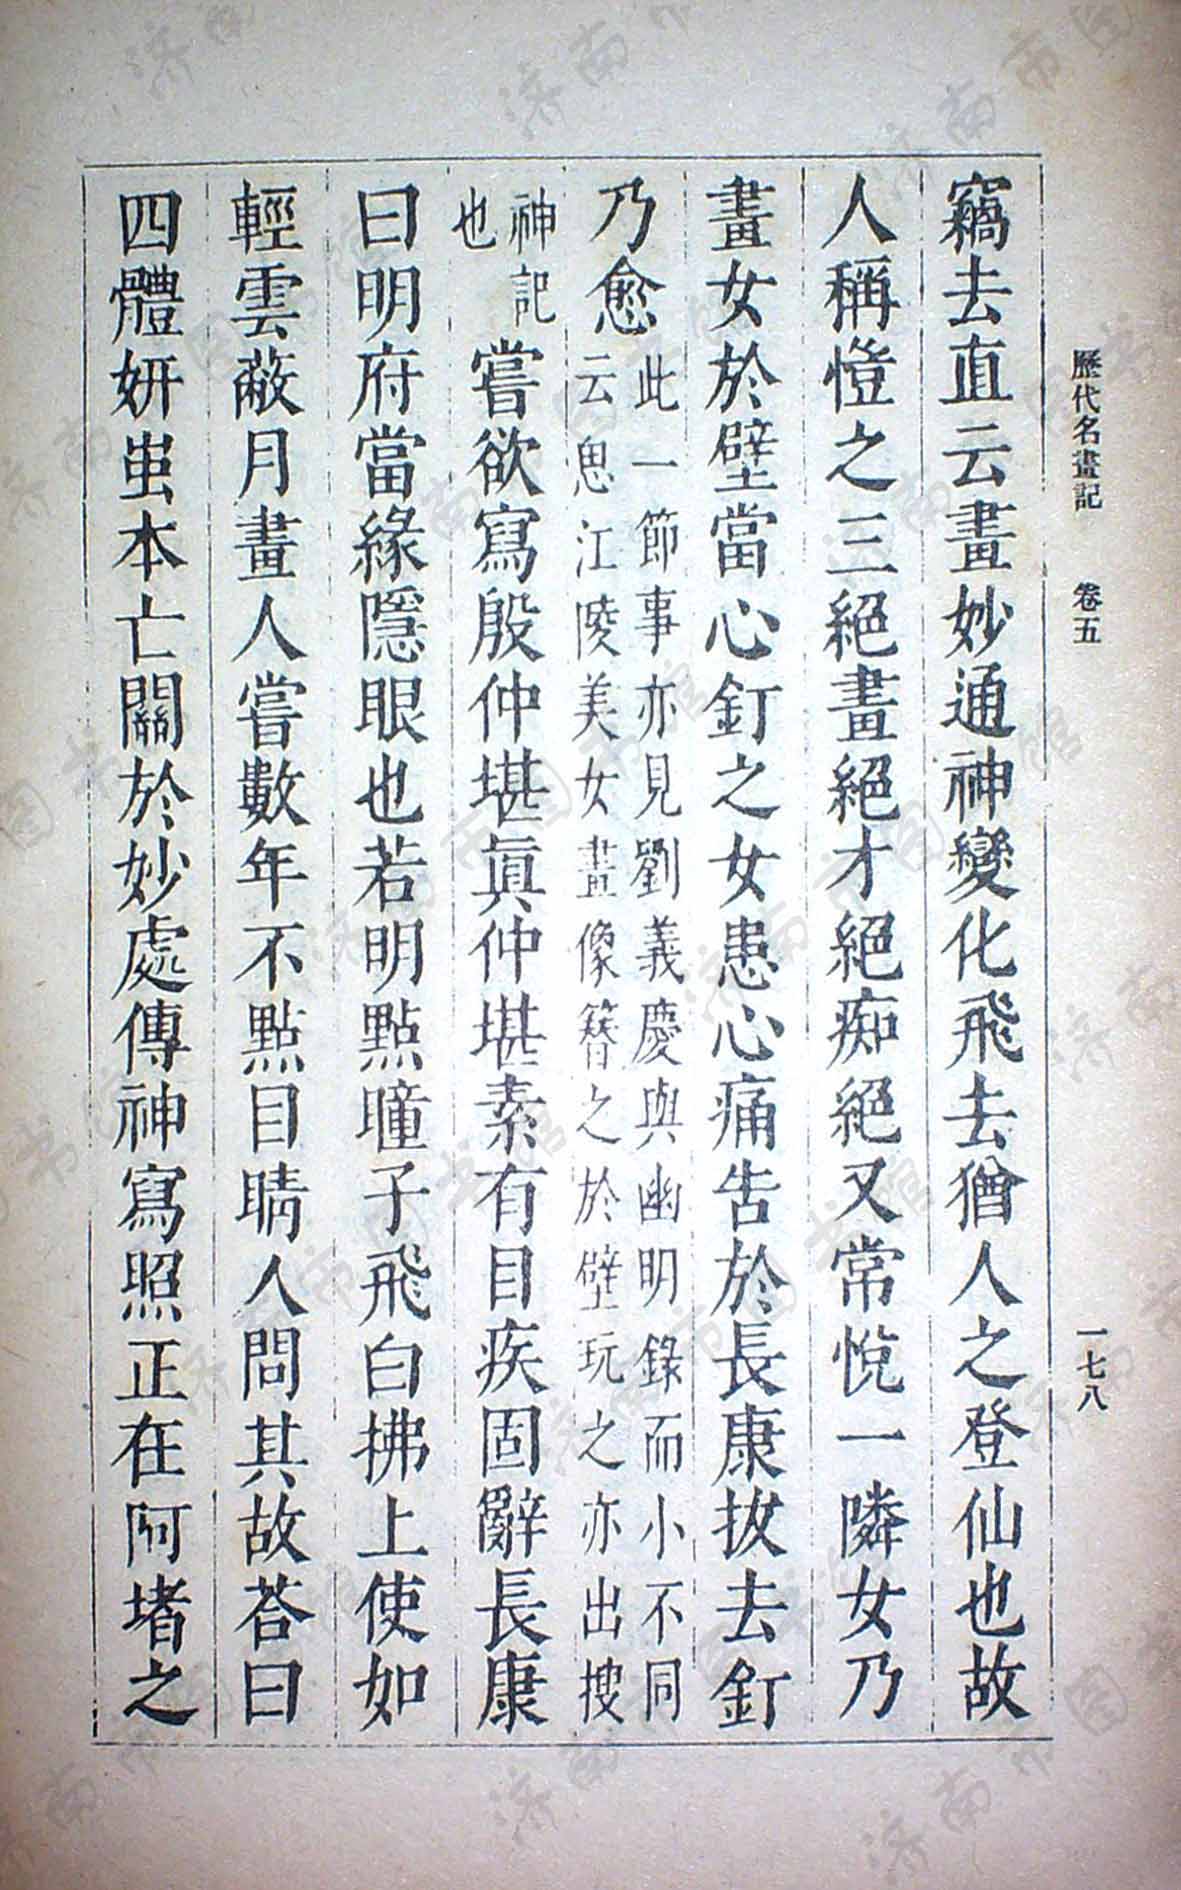 歷代名畫記 卷五 一七八
竊去直云畫妙通神變化飛去猶人之登仙也故
人稱愷之三絕畫絕才絕痴絕又常悅一隣女乃
畫女於壁當心釘之女患心痛告於長康拔去釘
乃愈此一節事亦見劉義慶與幽明錄而小不同
云思江陵美女畫像簪之於壁玩之亦出搜
神記
也
嘗欲寫殷仲堪眞仲堪素有目疾固辭長康
曰明府當緣隱眼也若明點瞳子飛白拂上使如
輕雲蔽月畫人嘗數年不點目睛人問其故荅曰
四體妍蚩本亡關於妙處傳神寫照正在阿堵之
济南市图书馆